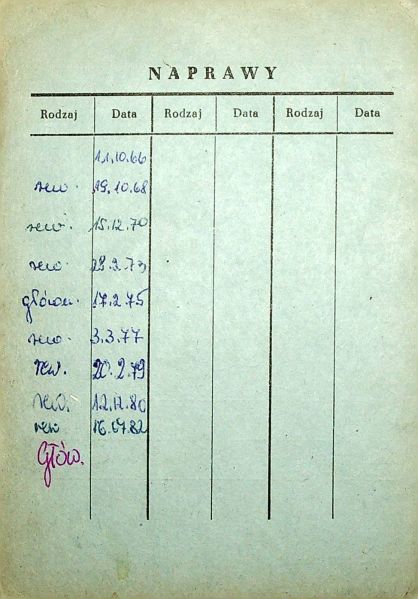 NAPRAWY
Rodzaj Data Rodzaj Data Rodzaj Data
11.10.66
rew. 19.10.68
rew. 15.12.70
rew. 2.73
główn. 17.2.75
rew. 3.3.77
rew. 20.2.79
rew. 12.12.80
rew 16.07.82
Głów.